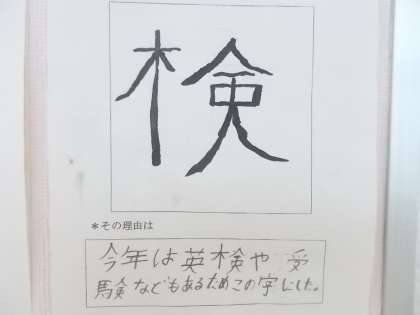 検
*その理由は
今年は英検や受
験などもあるためこの字にした。